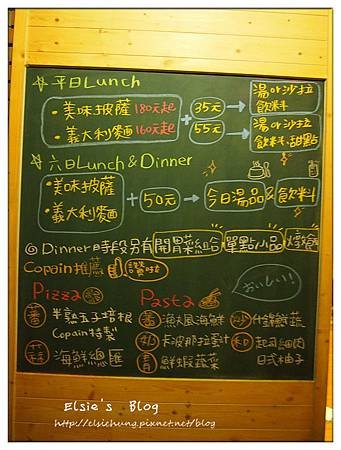 平日Lunch
・美味披薩180元起
・義大利麵160元起
+
35元 → 湯or沙拉
飲料
55元 → 湯or沙拉
飲料.甜點
六日Lunch & Dinner
・美味披薩
・義大利麵
+ 50元 → 今日湯品 & 飲料
◎ Dinner時段另有開胃菜組合 單點小品 燉飯
Copain推薦 讚啦
おいしい!
Pizza
蕃 半熟玉子培根
Copain特製
蒜 海鮮總匯
Pasta
蕃 漁夫風海鮮
奶 卡波那拉蛋汁
青 鮮蝦蔬菜
沙 什錦鮮蔬
和 起司雞肉
日式柚子
Elsie's Blog
http://elsiehung.pixnet.net/blog